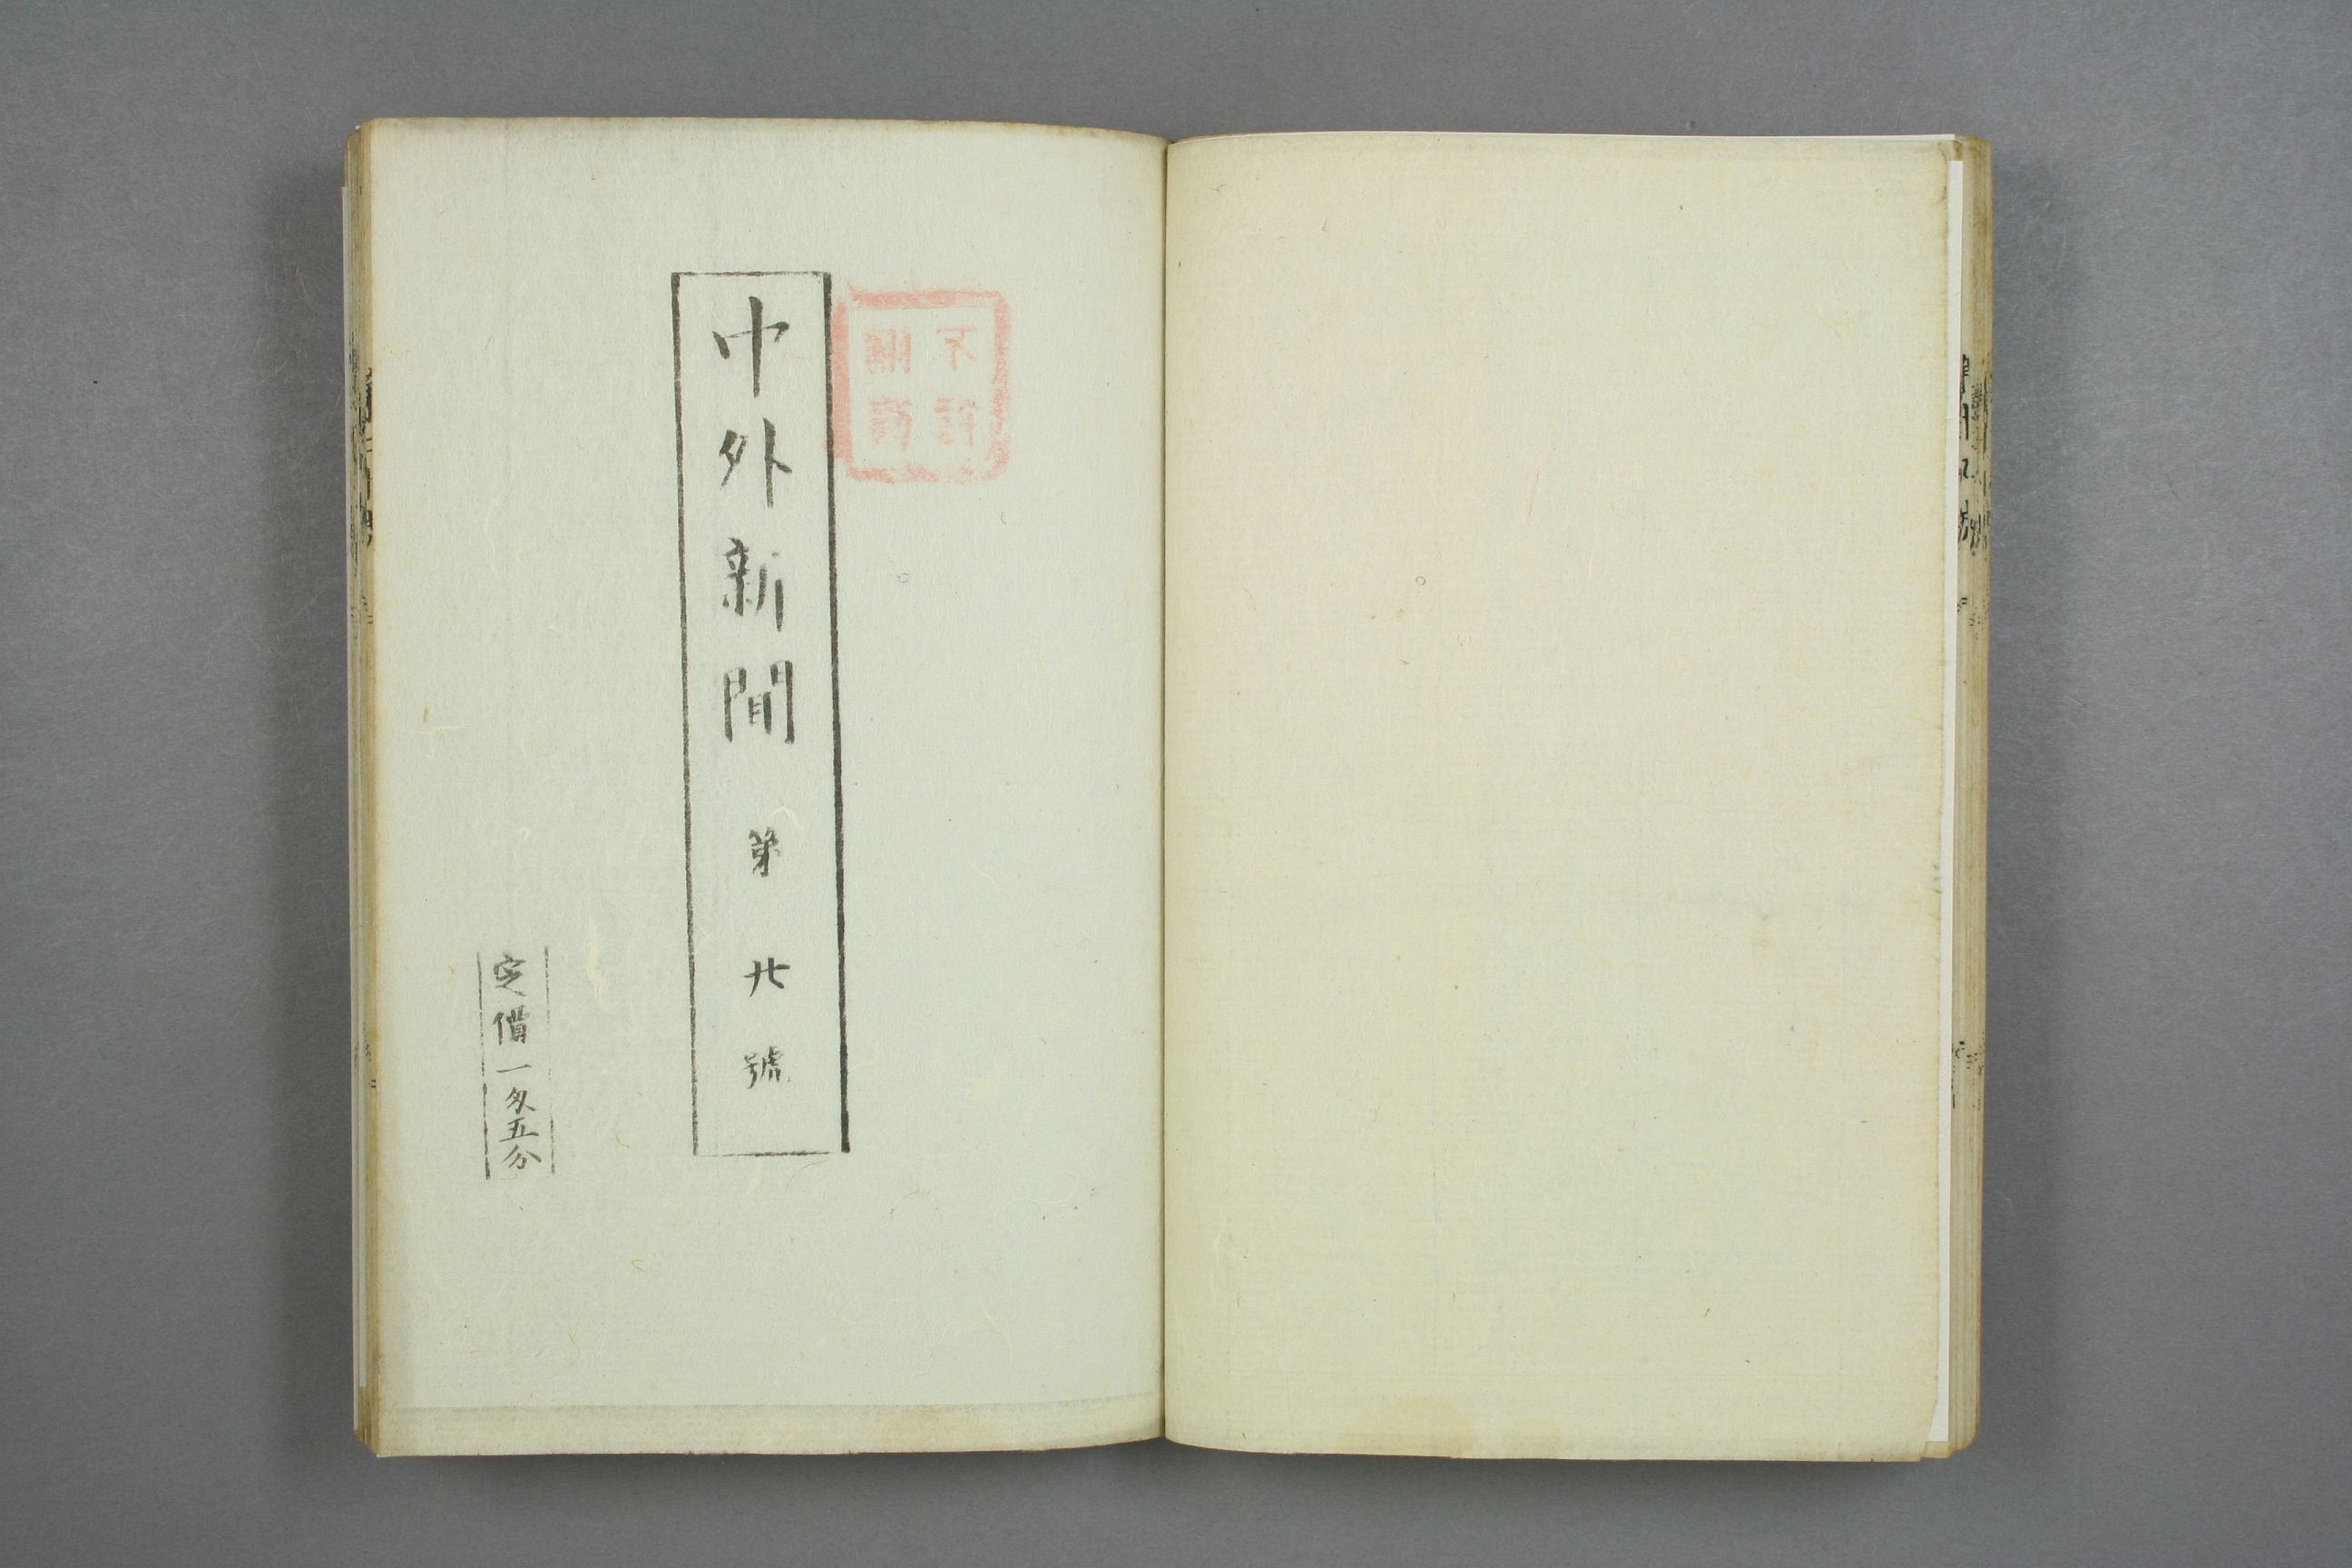 不許
翻刻
中外新聞 第廿號
定價一匁五分